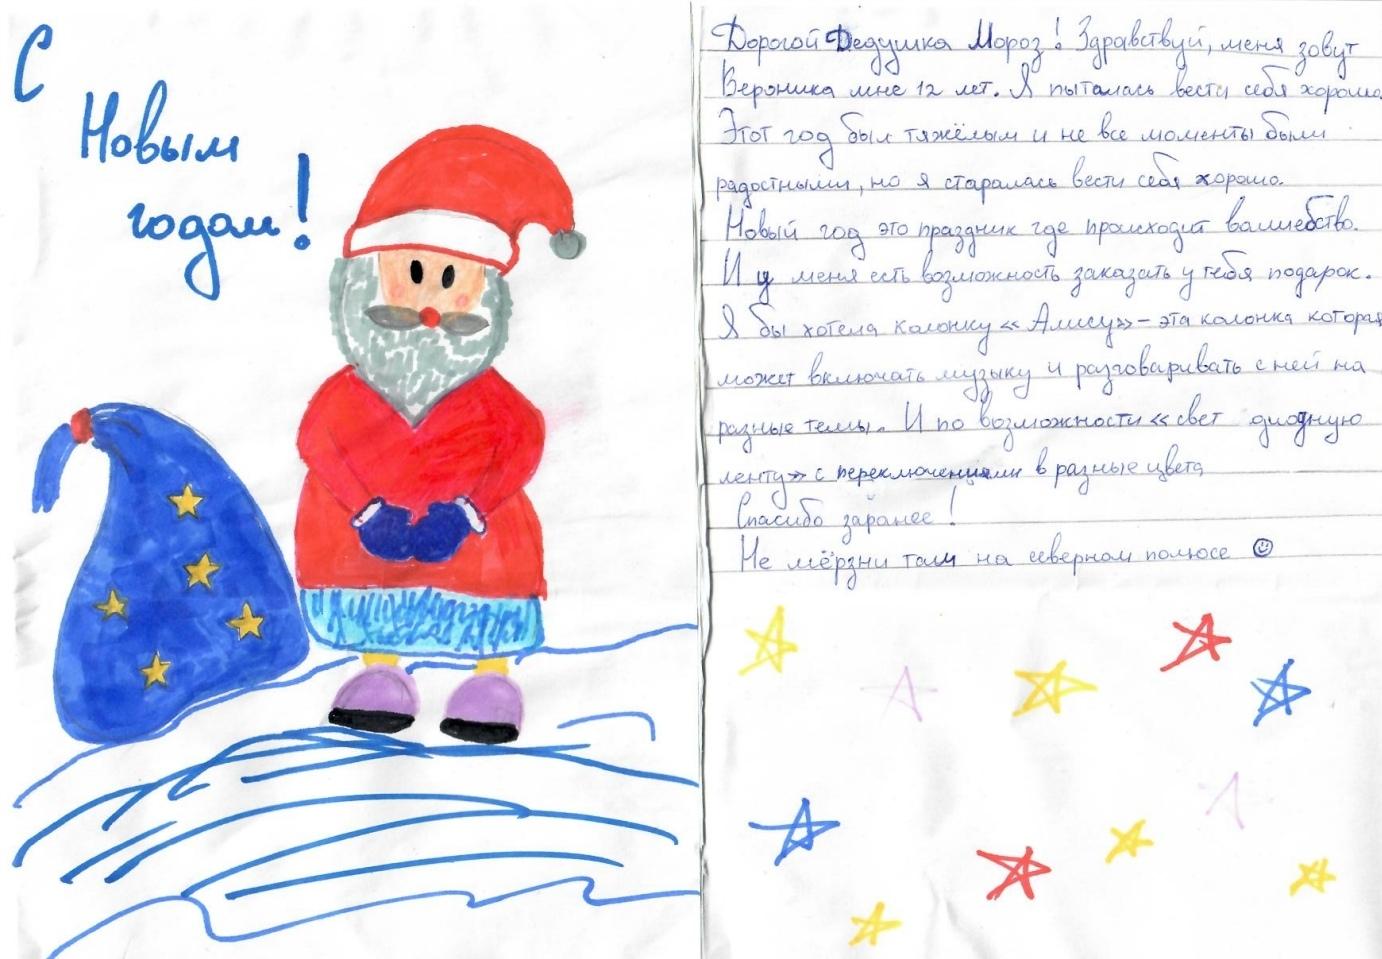 С
Новым
годом!
Дорогой Дедушка Мороз! Здравствуй, меня зовут
Вероника мне 12 лет. Я пыталась вести себя хорошо.
Этот год был тяжёлым и не все моменты были
радостными, но я старалась вести себя хорошо.
Новый год это праздник где происходит волшебство.
И у меня есть возможность заказать у тебя подарок.
Я бы хотела колонку «Алису» – эта колонка которая
может включать музыку и разговаривать с ней на
разные темы. И по возможности «свет диодную
ленту» с переключениями в разные цвета
Спасибо заранее!
Не мёрзни там на северном полюсе ☺